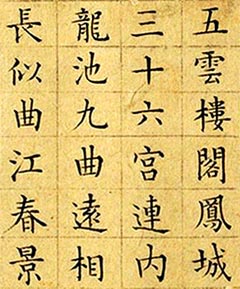 五雲樓閣鳳城
三十六宮連内
龍池九曲遠相
長似曲江春景